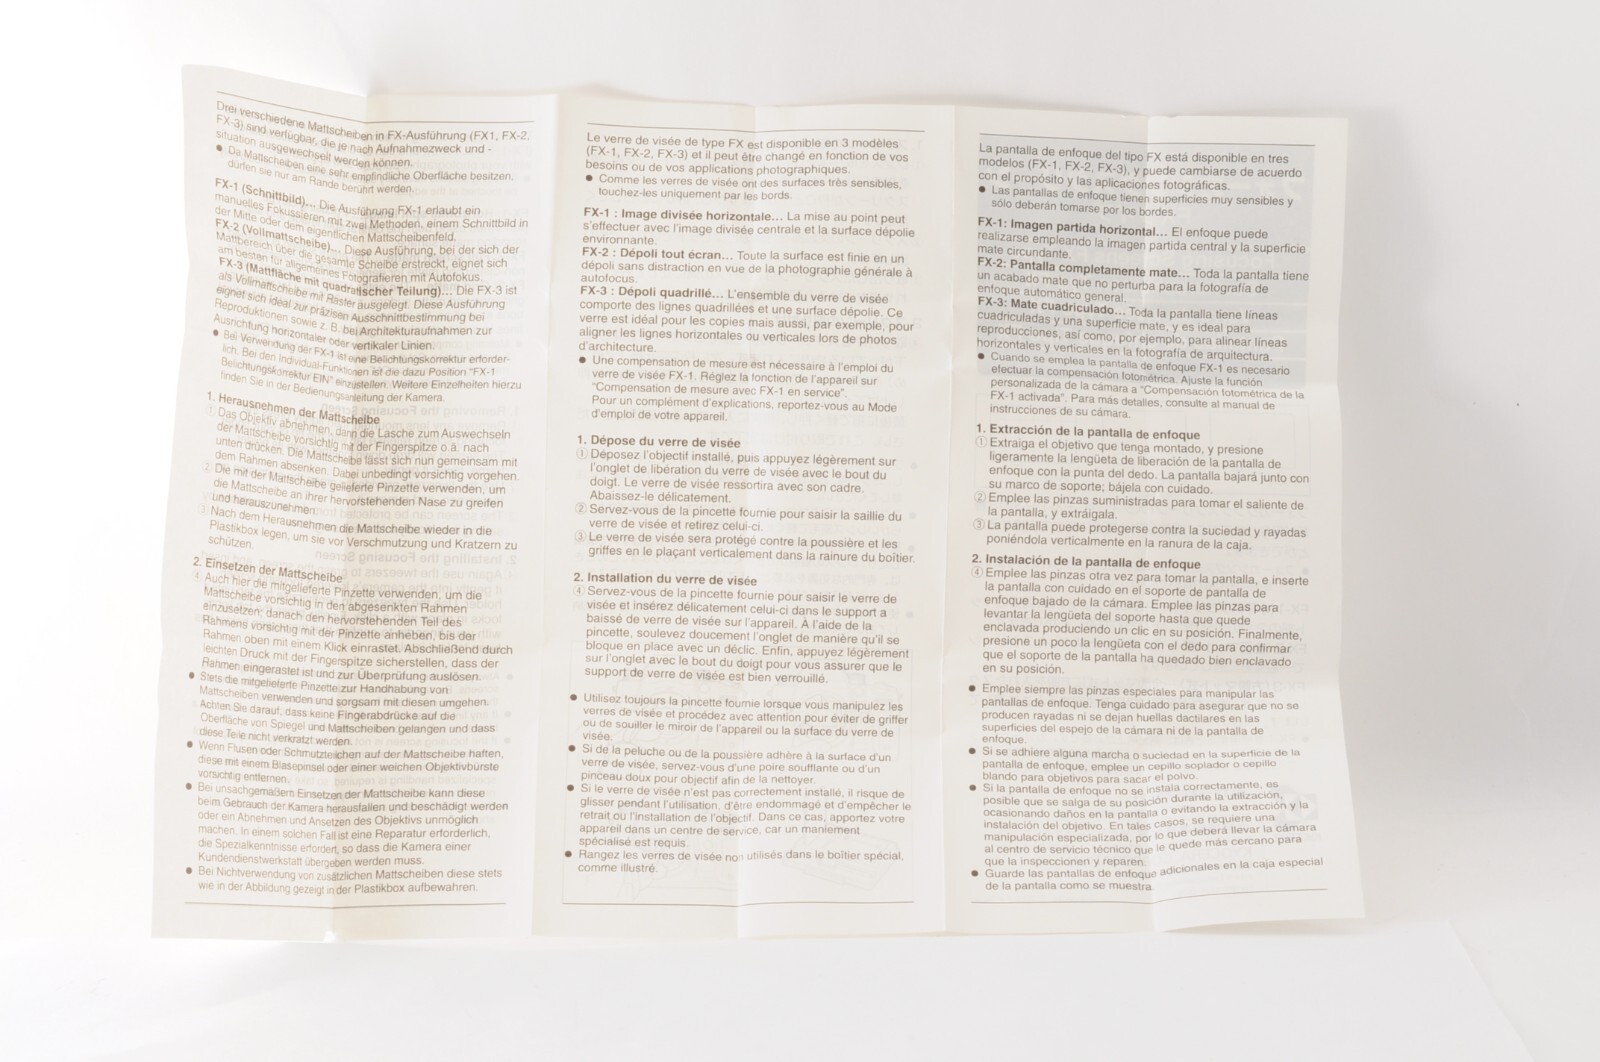 Drei verschiedene Mattscheiben in FX-Ausführung (FX1, FX-2,
FX-3) sind verfügbar, die je nach Aufnahmezweck und -
situation ausgewechselt werden können.
● Da Mattscheiben eine sehr empfindliche Oberfläche besitzen,
dürfen sie nur am Rande berührt werden.
FX-1 (Schnittbild)… Die Ausführung FX-1 erlaubt ein
manuelles Fokussieren mit zwei Methoden, einem Schnittbild in
der Mitte oder dem eigentlichen Mattscheibenfeld.
FX-2 (Vollmattscheibe)… Diese Ausführung, bei der sich der
Mattbereich über die gesamte Scheibe erstreckt, eignet sich
am besten für allgemeines Fotografieren mit Autofokus.
FX-3 (Mattfläche mit quadratischer Teilung)… Die FX-3 ist
als Vollmattscheibe mit Raster ausgelegt. Diese Ausführung
eignet sich ideal zur präzisen Ausschnittbestimmung bei
Reproduktionen sowie z. B. bei Architekturaufnahmen zur
Ausrichtung horizontaler oder vertikaler Linien.
● Bei Verwendung der FX-1 ist eine Belichtungskorrektur erforder-
lich. Bei den Individual-Funktionen ist die dazu Position "FX-1
Belichtungskorrektur EIN" einzustellen. Weitere Einzelheiten hierzu
finden Sie in der Bedienungsanleitung der Kamera.
1. Herausnehmen der Mattscheibe
① Das Objektiv abnehmen, dann die Lasche zum Auswechseln
der Mattscheibe vorsichtig mit der Fingerspitze o.ä. nach
unten drücken. Die Mattscheibe lässt sich nun gemeinsam mit
dem Rahmen absenken. Dabei unbedingt vorsichtig vorgehen.
② Die mit der Mattscheibe gelieferte Pinzette verwenden, um
die Mattscheibe an ihrer hervorstehenden Nase zu greifen
und herauszunehmen.
③ Nach dem Herausnehmen die Mattscheibe wieder in die
Plastikbox legen, um sie vor Verschmutzung und Kratzern zu
schützen.
2. Einsetzen der Mattscheibe
④ Auch hier die mitgelieferte Pinzette verwenden, um die
Mattscheibe vorsichtig in den abgesenkten Rahmen
einzusetzen; danach den hervorstehenden Teil des
Rahmens vorsichtig mit der Pinzette anheben, bis der
Rahmen oben mit einem Klick einrastet. Abschließend durch
leichten Druck mit der Fingerspitze sicherstellen, dass der
Rahmen eingerastet ist und zur Überprüfung auslösen.
● Stets die mitgelieferte Pinzette zur Handhabung von
Mattscheiben verwenden und sorgsam mit diesen umgehen.
Achten Sie darauf, dass keine Fingerabdrücke auf die
Oberfläche von Spiegel und Mattscheiben gelangen und dass
diese Teile nicht verkratzt werden.
● Wenn Flusen oder Schmutzteichen auf der Mattscheibe haften,
diese mit einem Blasepinsel oder einer weichen Objektivbürste
vorsichtig entfernen.
● Bei unsachgemäßem Einsetzen der Mattscheibe kann diese
beim Gebrauch der Kamera herausfallen und beschädigt werden
oder ein Abnehmen und Ansetzen des Objektivs unmöglich
machen. In einem solchen Fall ist eine Reparatur erforderlich,
die Spezialkenntnisse erfordert, so dass die Kamera einer
Kundendienstwerkstatt übergeben werden muss.
● Bei Nichtverwendung von zusätzlichen Mattscheiben diese stets
wie in der Abbildung gezeigt in der Plastikbox aufbewahren.
Le verre de visée de type FX est disponible en 3 modèles
(FX-1, FX-2, FX-3) et il peut être changé en fonction de vos
besoins ou de vos applications photographiques.
● Comme les verres de visée ont des surfaces très sensibles,
touchez-les uniquement par les bords.
FX-1 : Image divisée horizontale… La mise au point peut
s'effectuer avec l'image divisée centrale et la surface dépolie
environnante.
FX-2 : Dépoli tout écran… Toute la surface est finie en un
dépoli sans distraction en vue de la photographie générale à
autofocus.
FX-3 : Dépoli quadrillé… L'ensemble du verre de visée
comporte des lignes quadrillées et une surface dépolie. Ce
verre est idéal pour les copies mais aussi, par exemple, pour
aligner les lignes horizontales ou verticales lors de photos
d'architecture.
● Une compensation de mesure est nécessaire à l'emploi du
verre de visée FX-1. Réglez la fonction de l'appareil sur
"Compensation de mesure avec FX-1 en service".
Pour un complément d'explications, reportez-vous au Mode
d'emploi de votre appareil.
1. Dépose du verre de visée
① Déposez l'objectif installé, puis appuyez légèrement sur
l'onglet de libération du verre de visée avec le bout du
doigt. Le verre de visée ressortira avec son cadre.
Abaissez-le délicatement.
② Servez-vous de la pincette fournie pour saisir la saillie du
verre de visée et retirez celui-ci.
③ Le verre de visée sera protégé contre la poussière et les
griffes en le plaçant verticalement dans la rainure du boîtier.
2. Installation du verre de visée
④ Servez-vous de la pincette fournie pour saisir le verre de
visée et insérez délicatement celui-ci dans le support a
baissé de verre de visée sur l'appareil. À l'aide de la
pincette, soulevez doucement l'onglet de manière qu'il se
bloque en place avec un déclic. Enfin, appuyez légèrement
sur l'onglet avec le bout du doigt pour vous assurer que le
support de verre de visée est bien verrouillé.
● Utilisez toujours la pincette fournie lorsque vous manipulez les
verres de visée et procédez avec attention pour éviter de griffer
ou de souiller le miroir de l'appareil ou la surface du verre de
visée.
● Si de la peluche ou de la poussière adhère à la surface d'un
verre de visée, servez-vous d'une poire soufflante ou d'un
pinceau doux pour objectif afin de la nettoyer.
● Si le verre de visée n'est pas correctement installé, il risque de
glisser pendant l'utilisation, d'être endommagé et d'empêcher le
retrait ou l'installation de l'objectif. Dans ce cas, apportez votre
appareil dans un centre de service, car un maniement
spécialisé est requis.
● Rangez les verres de visée non utilisés dans le boîtier spécial,
comme illustré.
La pantalla de enfoque del tipo FX está disponible en tres
modelos (FX-1, FX-2, FX-3), y puede cambiarse de acuerdo
con el propósito y las aplicaciones fotográficas.
● Las pantallas de enfoque tienen superficies muy sensibles y
sólo deberán tomarse por los bordes.
FX-1: Imagen partida horizontal… El enfoque puede
realizarse empleando la imagen partida central y la superficie
mate circundante.
FX-2: Pantalla completamente mate… Toda la pantalla tiene
un acabado mate que no perturba para la fotografía de
enfoque automático general.
FX-3: Mate cuadriculado… Toda la pantalla tiene líneas
cuadriculadas y una superficie mate, y es ideal para
reproducciones, así como, por ejemplo, para alinear líneas
horizontales y verticales en la fotografía de arquitectura.
● Cuando se emplea la pantalla de enfoque FX-1 es necesario
efectuar la compensación fotométrica. Ajuste la función
personalizada de la cámara a "Compensación fotométrica de la
FX-1 activada". Para más detalles, consulte al manual de
instrucciones de su cámara.
1. Extracción de la pantalla de enfoque
① Extraiga el objetivo que tenga montado, y presione
ligeramente la lengüeta de liberación de la pantalla de
enfoque con la punta del dedo. La pantalla bajará junto con
su marco de soporte; bájela con cuidado.
② Emplee las pinzas suministradas para tomar el saliente de
la pantalla, y extráigala.
③ La pantalla puede protegerse contra la suciedad y rayadas
poniéndola verticalmente en la ranura de la caja.
2. Instalación de la pantalla de enfoque
④ Emplee las pinzas otra vez para tomar la pantalla, e inserte
la pantalla con cuidado en el soporte de pantalla de
enfoque bajado de la cámara. Emplee las pinzas para
levantar la lengüeta del soporte hasta que quede
enclavada produciendo un clic en su posición. Finalmente,
presione un poco la lengüeta con el dedo para confirmar
que el soporte de la pantalla ha quedado bien enclavado
en su posición.
● Emplee siempre las pinzas especiales para manipular las
pantallas de enfoque. Tenga cuidado para asegurar que no se
producen rayadas ni se dejan huellas dactilares en las
superficies del espejo de la cámara ni de la pantalla de
enfoque.
● Si se adhiere alguna marcha o suciedad en la superficie de la
pantalla de enfoque, emplee un cepillo soplador o cepillo
blando para objetivos para sacar el polvo.
● Si la pantalla de enfoque no se instala correctamente, es
posible que se salga de su posición durante la utilización,
ocasionando daños en la pantalla o evitando la extracción y la
instalación del objetivo. En tales casos, se requiere una
manipulación especializada, por lo que deberá llevar la cámara
al centro de servicio técnico que le quede más cercano para
que la inspeccionen y reparen.
● Guarde las pantallas de enfoque adicionales en la caja especial
de la pantalla como se muestra.